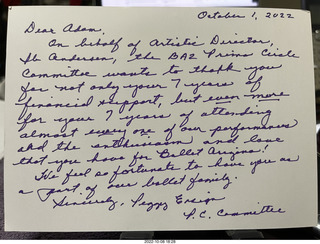 October 1, 2022
Dear Adam,
On behalf of Artistic Director,
Ib Andersen, the BAZ Prima Circle
Committee wants to thank you
for not only your 7 years of
financial support, but even more
for your 7 years of attending
almost every one of our performances
and the enthusiasm and love
that you have for Ballet Arizona!
We feel so fortunate to have you as
a part of our ballet family.
Sincerely, Peggy Ensign
P.C. Committee
2022-10-08 18:28